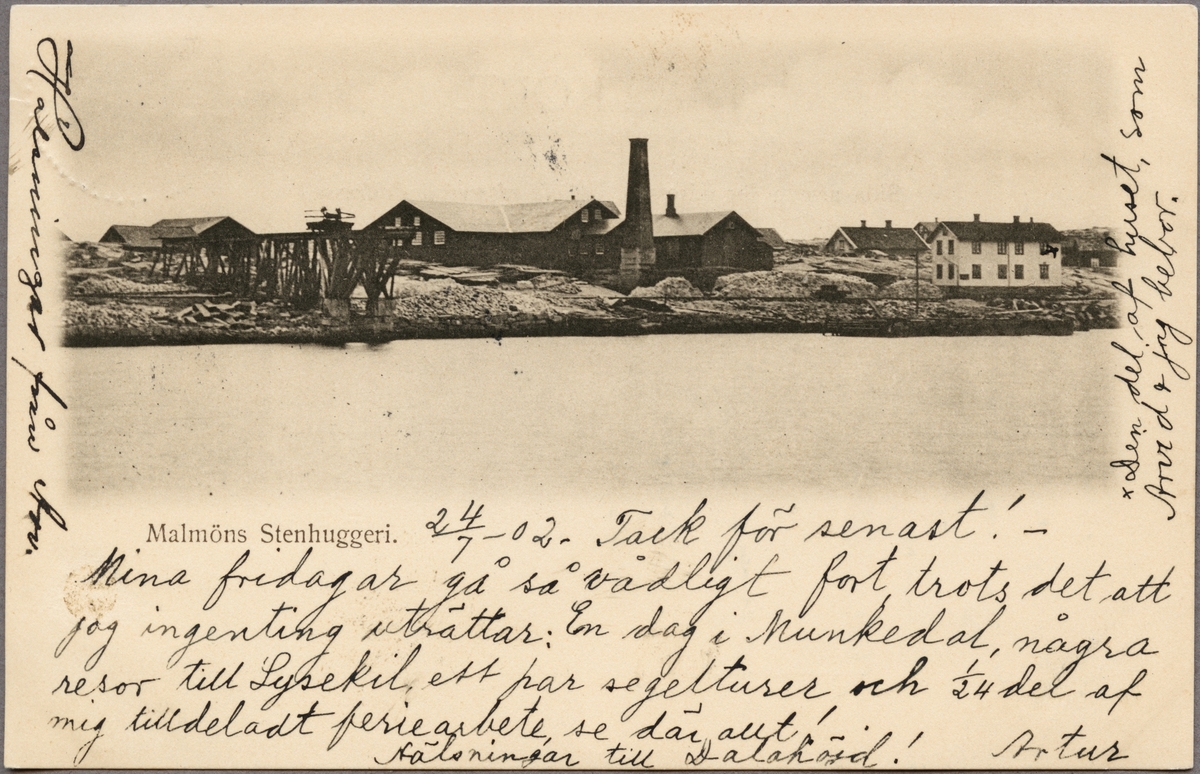 Malmöns Stenhuggeri. 24/7-02. Tack för senast! -
Mina fridagar gå så vådligt fort, trots det att
jag ingenting uträttar: En dag i Munkedal, några
resor till Lysekil, ett par segelturer och 1/24 del af
mig tilldeladt feriearbete, se där allt!
Hälsningar till Dalahöjd! Artur
Hälsningar från Arv.
×Den del af huset, som
Arvid & jag bebor.